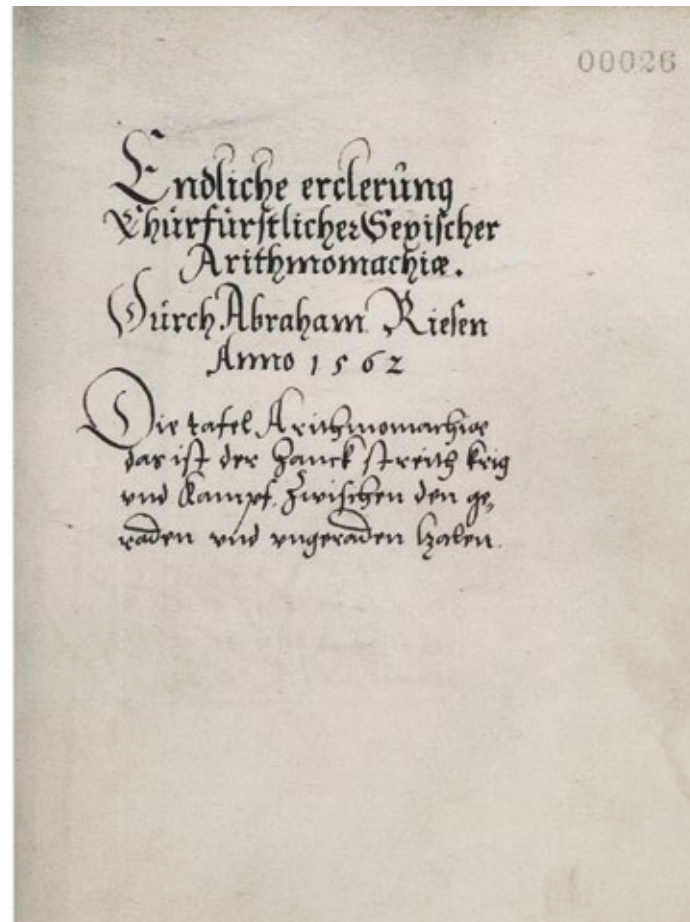 00026
Endliche erclerung
Churfürstlicher Sexischer
Arithmomachiæ.
Durch Abraham Riesen
Anno 1562
Die tafel Arithmomachiæ
das ist der Zanck streith krig
vnd Kampf. Zwischen den ge,
raden vnd vngeraden Zalen.